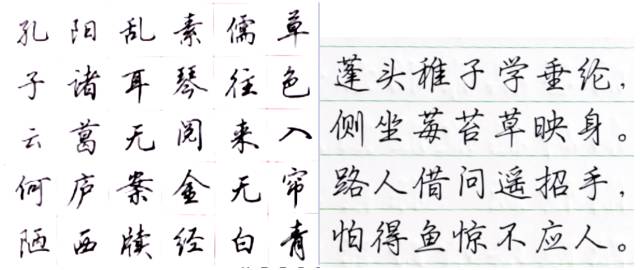 草色入帘青
儒往来无白
素琴阅金经
乱耳无案牍
阳诸葛庐西
孔子云何陋
蓬头稚子学垂纶，
侧坐莓苔草映身。
路人借问遥招手，
怕得鱼惊不应人。